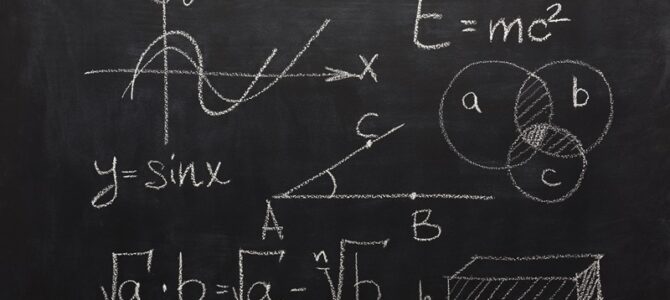 E = mc²
x
a b
c
C
y = sinx
A B
√a · b = √a − ⁿ√b